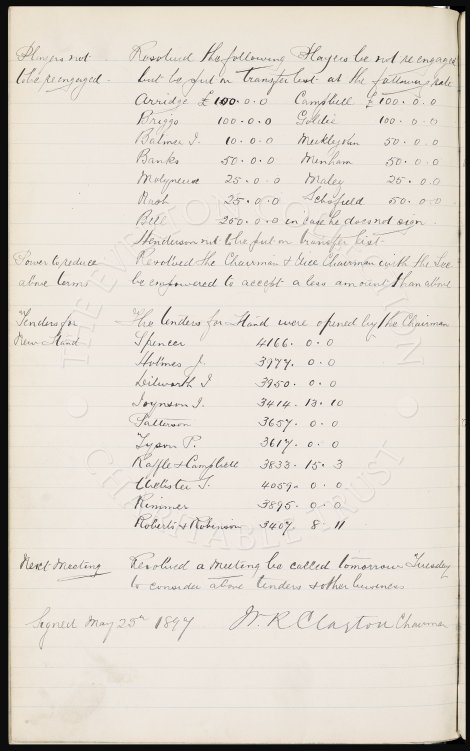 Players not Resolved the following Players be not re engaged
to be re engaged. but be put on transfer list at the following rate
Arridge £100.0.0 Campbell £100.0.0
Briggs 100.0.0 Goldie 100.0.0
Balmer J. 10.0.0 Meiklejohn 50.0.0
Banks 50.0.0 Menham 50.0.0
Molyneux 25.0.0 Maley 25.0.0
Nash 25.0.0 Schofield 50.0.0
Bell 250.0.0 in case he does not sign.
Henderson not to be put on transfer list.
Power to reduce Resolved the Chairman & Vice Chairman with the Sec
above terms be empowered to accept a less amount than above
Tenders for The tenders for Stand were opened by the Chairman
New Stand Spencer 4166.0.0
Holmes J. 3977.0.0
Dilworth J 3950.0.0
Joynson J. 3414.13.10
Patterson 3657.0.0
Tyson P. 3617.0.0
Raffle & Campbell 3833.15.3
Webster J. 4059.0.0
Rimmer 3895.0.0
Roberts & Robinson 3407.8.11
Next Meeting Resolved a Meeting be called tomorrow Tuesday
to consider above tenders & other business
Signed May 25th 1897 W. R. Clayton Chairman
THE EVERTON COLLECTION
CHARITABLE TRUST